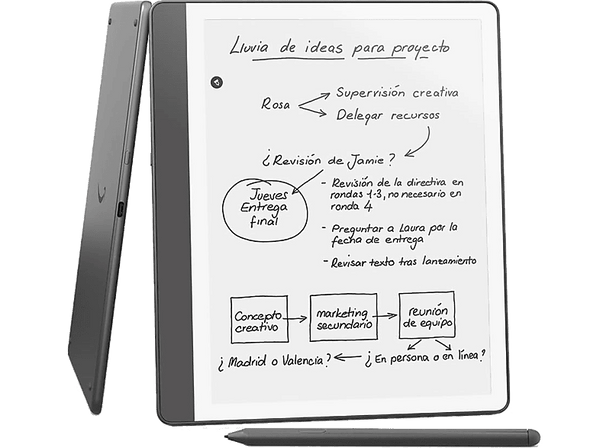 Lluvia de ideas para proyecto
Rosa
Supervisión creativa
Delegar recursos
¿Revisión de Jamie?
Jueves
Entrega
final
- Revisión de la directiva en
rondas 1-3, no necesario en
ronda 4
- Preguntar a Laura por la
fecha de entrega
- Revisar texto tras lanzamiento
Concepto
creativo
marketing
secundario
reunión
de equipo
¿Madrid o Valencia?
¿En persona o en línea?